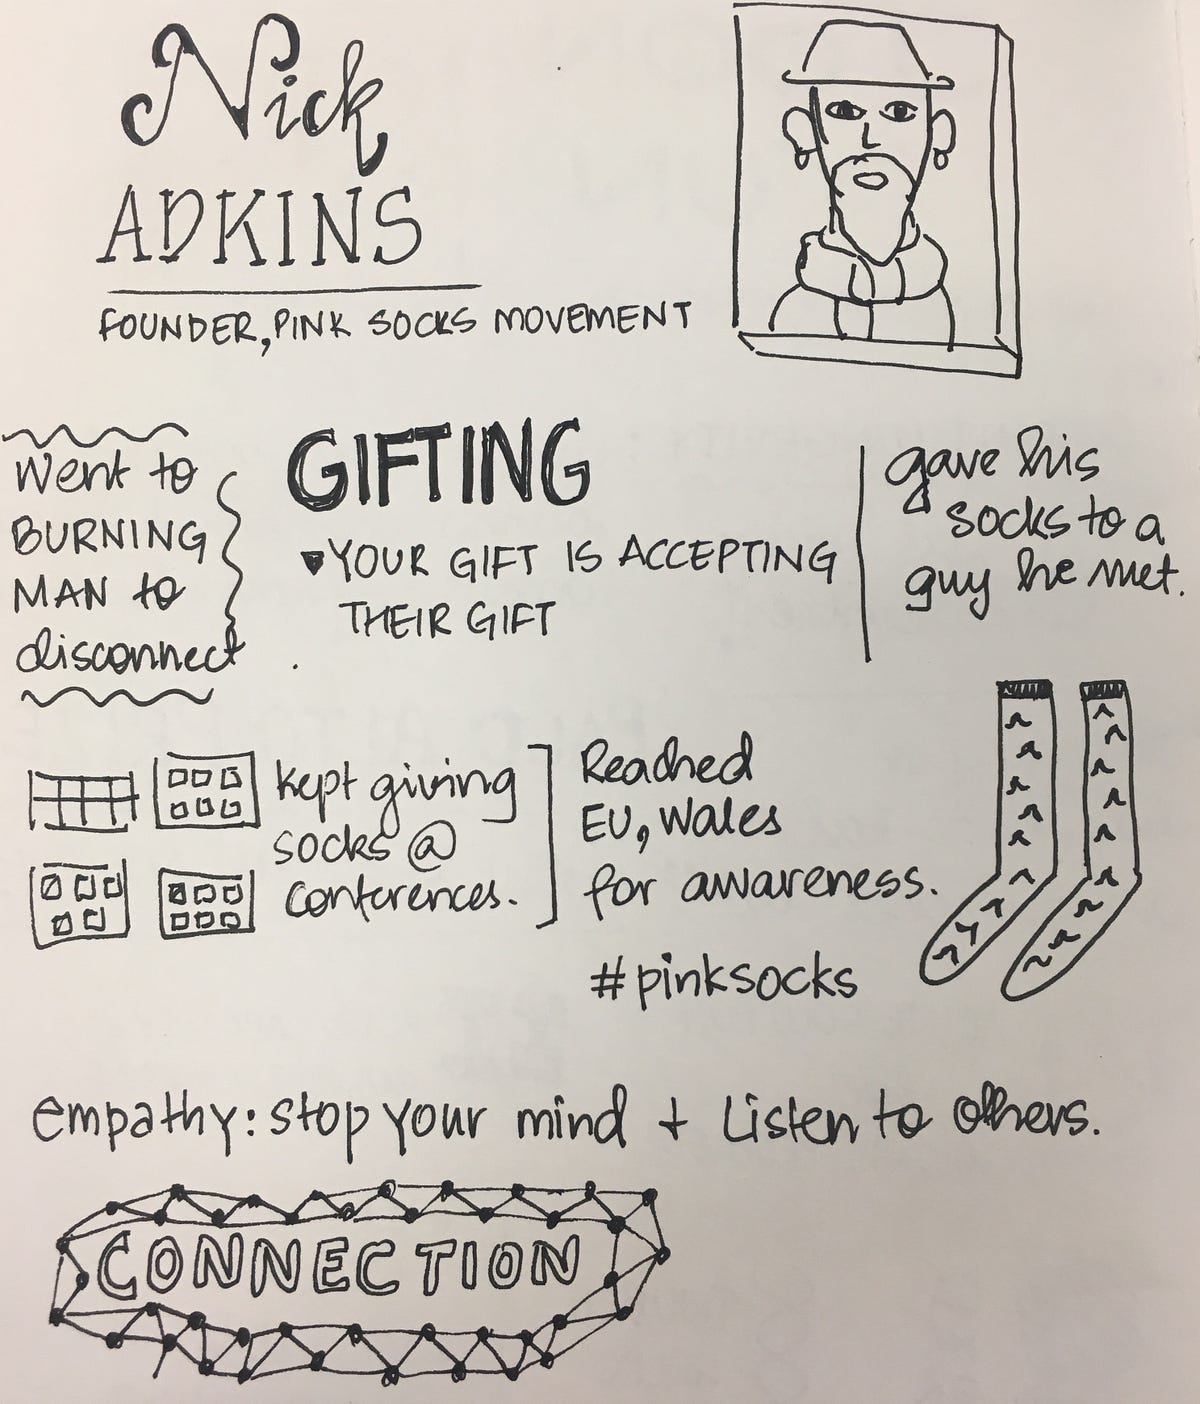 Nick
ADKINS
FOUNDER, PINK SOCKS MOVEMENT
Went to
BURNING
MAN to
disconnect
GIFTING
YOUR GIFT IS ACCEPTING
THEIR GIFT
gave his
socks to a
guy he met.
kept giving
socks @
conferences.
Reached
EU, Wales
for awareness.
#pinksocks
empathy: stop your mind + Listen to others.
CONNECTION